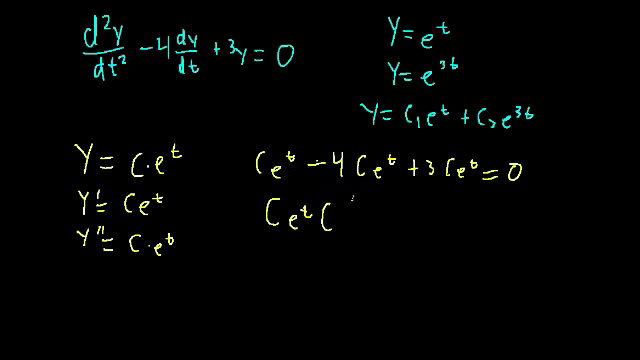 d²y/dt² - 4 dy/dt + 3y = 0
y = e^t
y = e^3t
y = c₁e^t + c₂e^3t
y = c·e^t
y' = ce^t
y'' = c·e^t
ce^t - 4ce^t + 3ce^t = 0
ce^t (